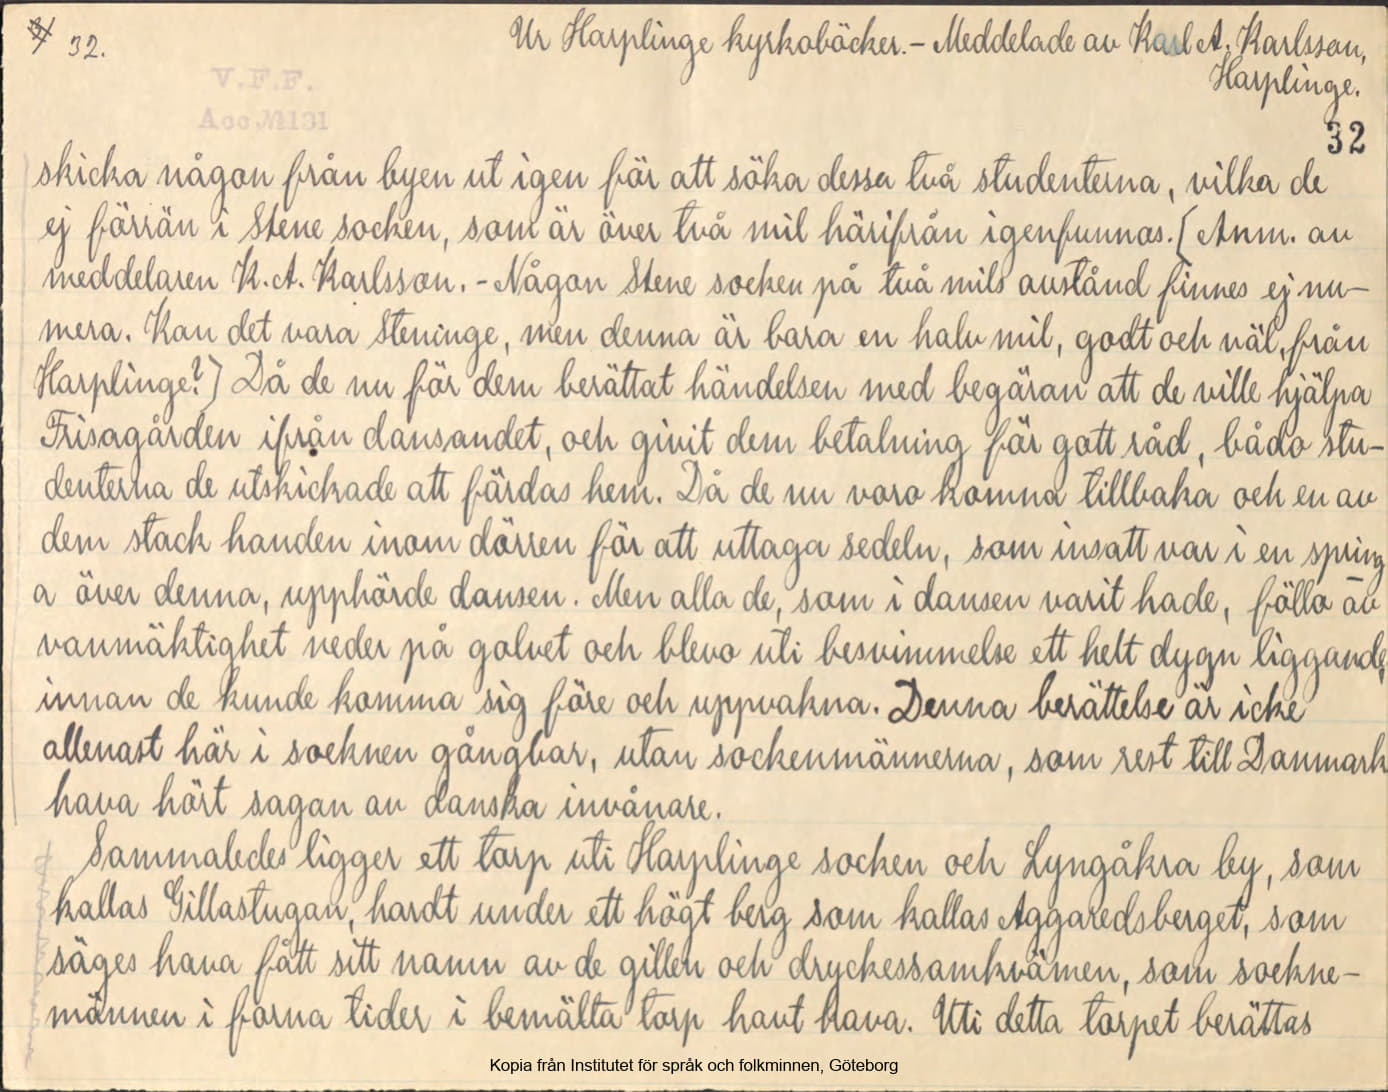 32.
Ur Harplinge kyrkoböcker. – Meddelade av Karl A. Karlsson,
Harplinge.
V.F.F.
Acc. № 131
32
skicka någon från byen ut igen för att söka dessa två studenterna, vilka de
ej förrän i Stene socken, som är över två mil härifrån igenfunnos. [Anm. av
meddelaren K. A. Karlsson. – Någon Stene socken på två mils avstånd finnes ej nu-
mera. Kan det vara Steninge, men denna är bara en halv mil, godt och väl, från
Harplinge?] Då de nu för dem berättat händelsen med begäran att de ville hjälpa
Frisagården ifrån dansandet, och givit dem betalning för gott råd, bådo stu-
denterna de utskickade att färdas hem. Då de nu voro komna tillbaka och en av
dem stack handen inom dörren för att uttaga sedeln, som insatt var i en spring
a över denna, upphörde dansen. Men alla de, som i dansen varit hade, föllo av
vanmäktighet neder på golvet och blevo uti besvimmelse ett helt dygn liggande,
innan de kunde komma sig före och uppvakna. Denna berättelse är icke
allenast här i socknen gångbar, utan sockenmännerna, som rest till Danmark
hava hört sagan av danska invånare.
Sammaledes ligger ett torp uti Harplinge socken och Lyngåkra by, som
kallas Gillastugan, hardt under ett högt berg som kallas Aggaredsberget, som
säges hava fått sitt namn av de gillen och dryckessamkvämen, som sockne-
männen i forna tider i bemälta torp havt hava. Uti detta torpet berättas
Kopia från Institutet för språk och folkminnen, Göteborg